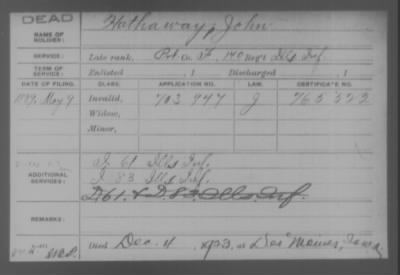 DEAD
Hathaway, John
NAME OF
SOLDIER:
SERVICE: Late rank, Pvt Co. F, 140 Reg't Ills Inf.
TERM OF
SERVICE: Enlisted , 1 Discharged , 1
DATE OF FILING. CLASS. APPLICATION NO. LAW. CERTIFICATE NO.
May 9 Invalid, 703 947 J 765 523
Widow,
Minor,
ADDITIONAL
SERVICES:
61 Ills Inf.
83 Ills Inf.
D 61. & D. 83 Ills. Inf.
REMARKS:
Died Dec. 4, 1923, at Des Moines, Iowa